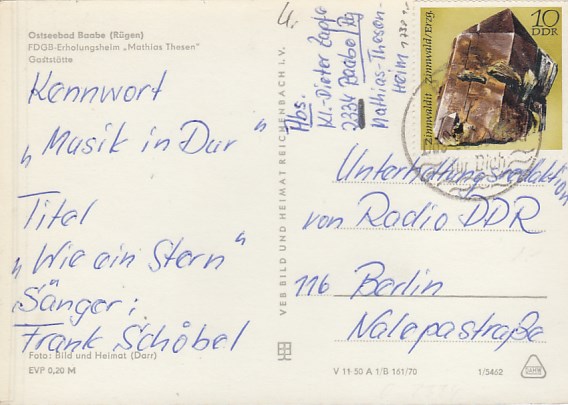 Ostseebad Baabe (Rügen)
FDGB-Erholungsheim „Mathias Thesen"
Gaststätte
Kennwort
„Musik in Dur"
Titel
„Wie ein Stern"
Sänger:
Frank Schöbel
Foto: Bild und Heimat (Darr)
EVP 0,20 M
VEB BILD UND HEIMAT REICHENBACH I. V.
Abs.
Kl.-Dieter
2334 Baabe/Rg
Mathias-Thesen-
Heim
10
DDR
Zinnwaldit Zinnwald/Erzg.
für Dich
Unterhaltungsredaktion
von Radio DDR
116 Berlin
Nalepastraße
V 11-50 A 1/B 161/70
1/5462